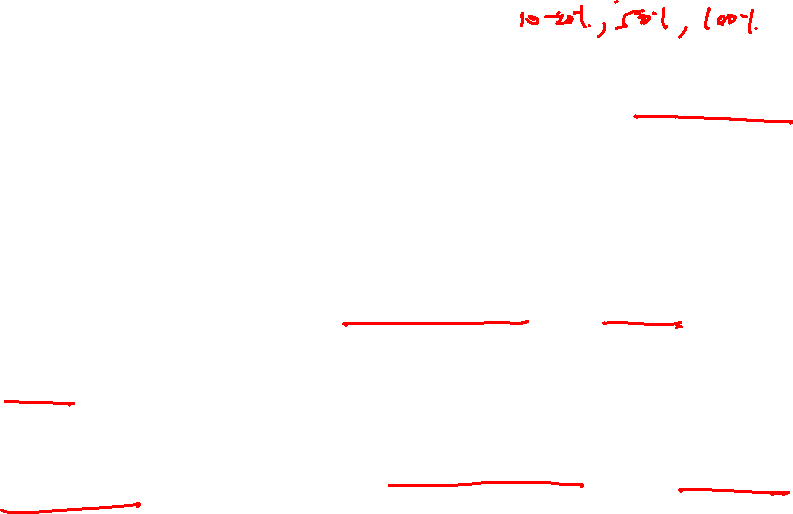 10-20%, 50%, 100%